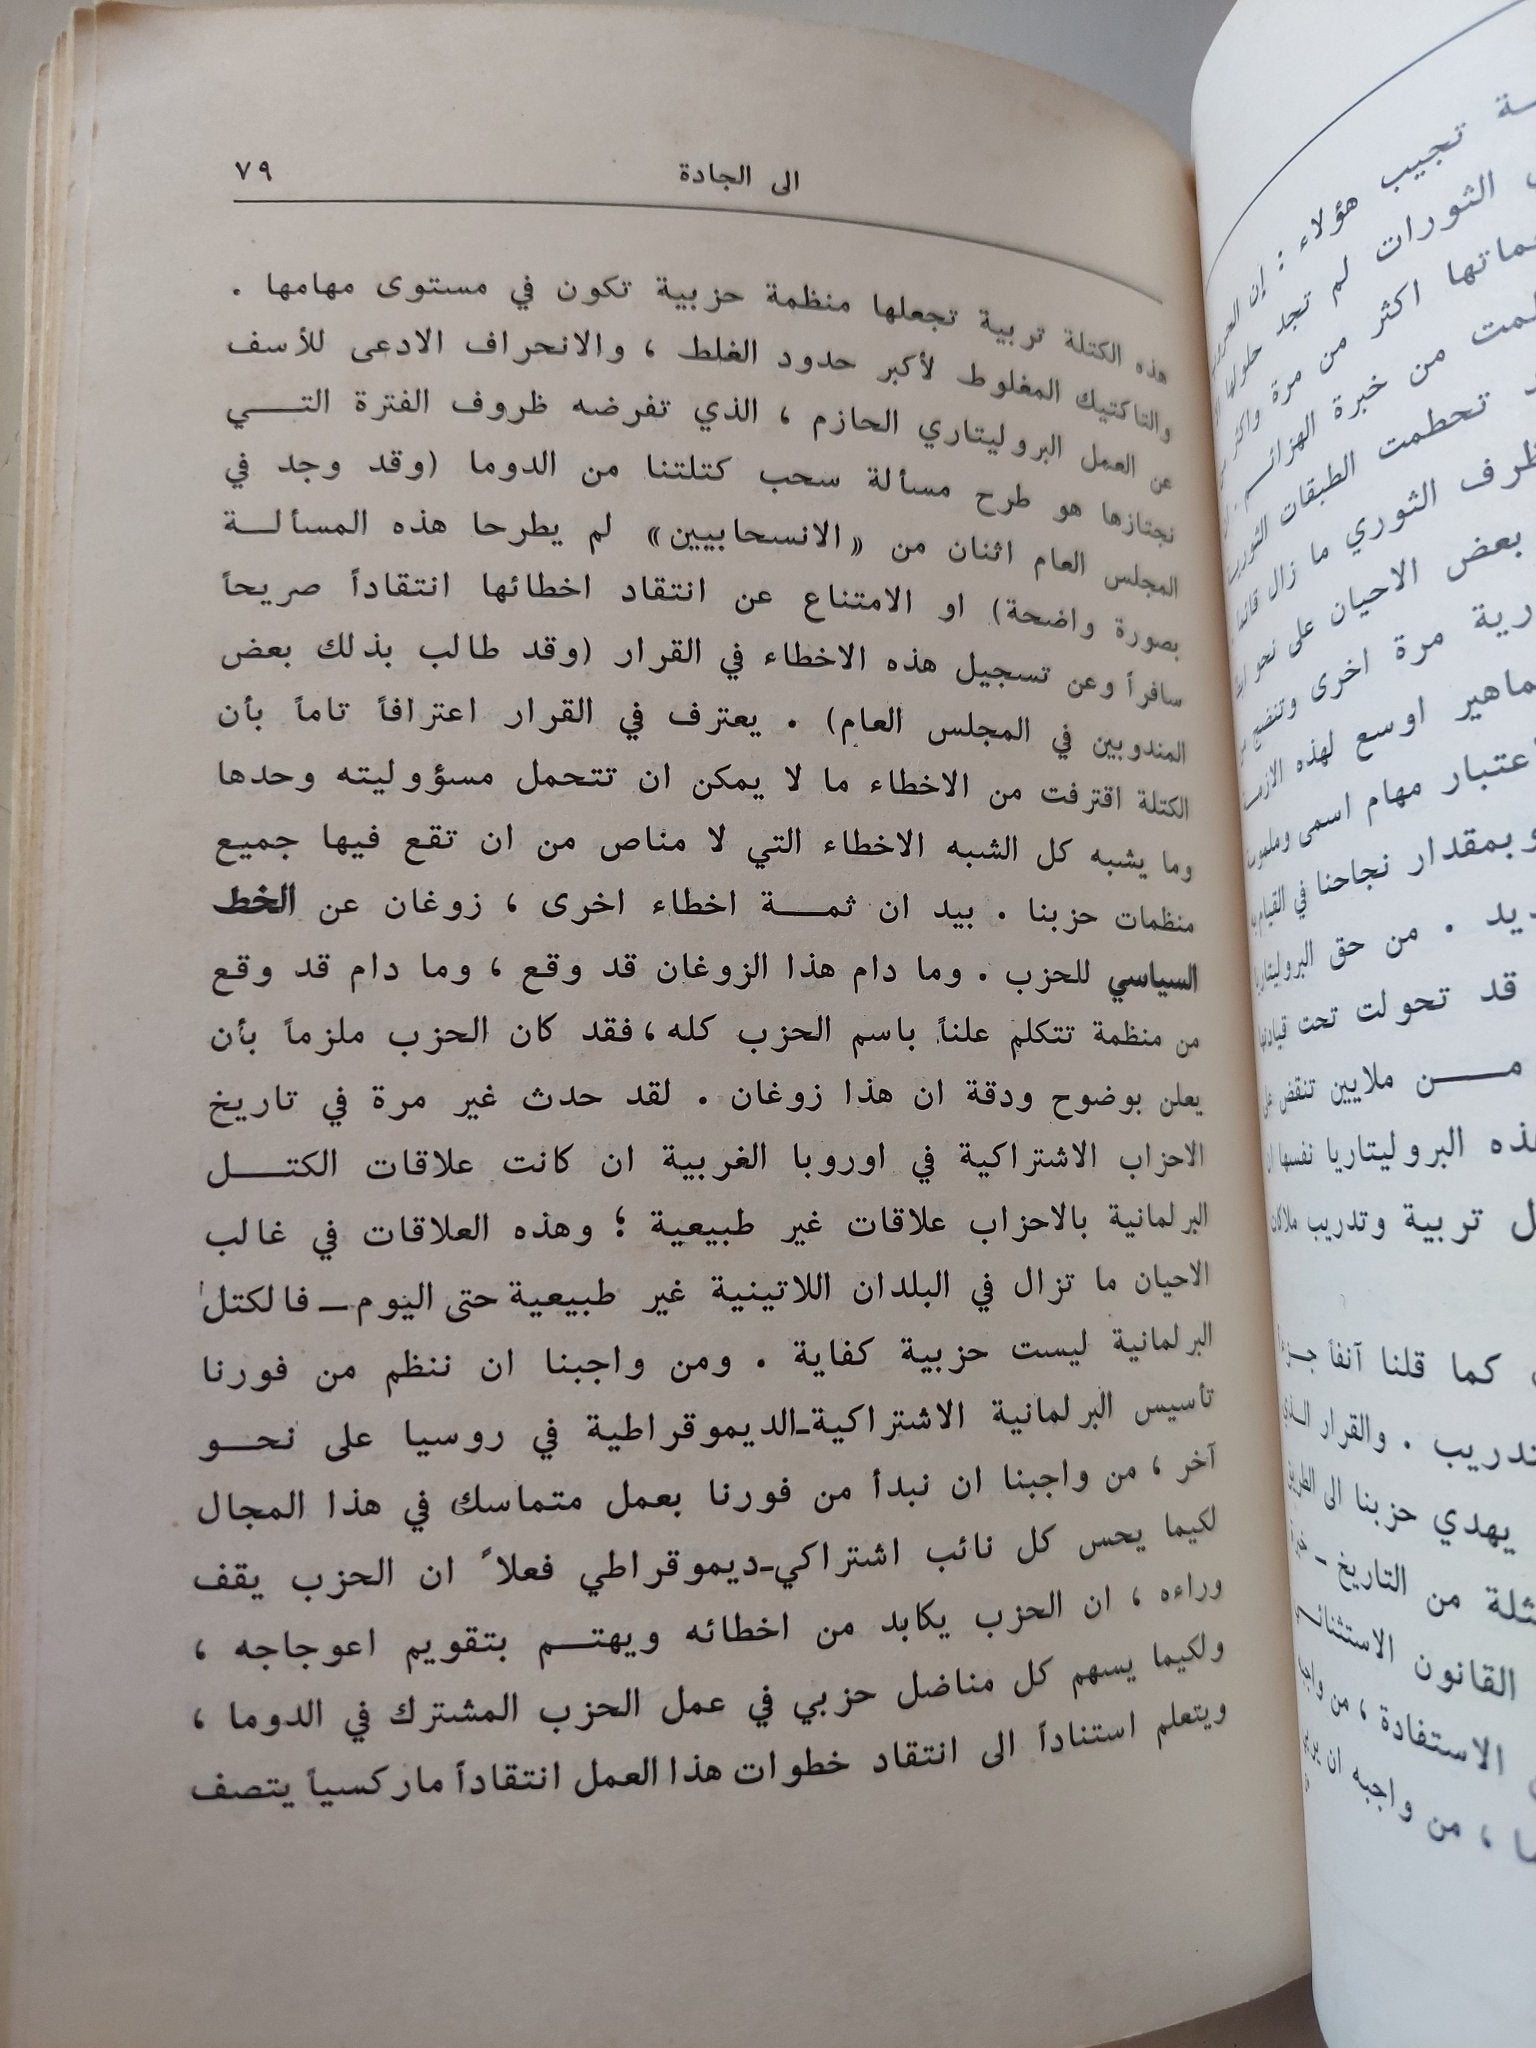 الى الجادة ٧٩
هذه الكتلة تربية تجعلها منظمة حزبية تكون في مستوى مهامها .
والتاكتيك المغلوط لأكبر حدود الغلط ، والانحراف الادعى للأسف
عن العمل البروليتاري الحازم ، الذي تفرضه ظروف الفترة التــي
نجتازها هو طرح مسألة سحب كتلتنا من الدوما (وقد وجد في
المجلس العام اثنان من «الانسحابيين» لم يطرحا هذه المسألــة
بصورة واضحة) او الامتناع عن انتقاد اخطائها انتقاداً صريحاً
سافراً وعن تسجيل هذه الاخطاء في القرار (وقد طالب بذلك بعض
المندوبين في المجلس العام) . يعترف في القرار اعترافاً تاماً بأن
الكتلة اقترفت من الاخطاء ما لا يمكن ان تتحمل مسؤوليته وحدها
وما يشبه كل الشبه الاخطاء التي لا مناص من ان تقع فيها جميع
منظمات حزبنا . بيد ان ثمــة اخطاء اخرى ، زوغان عن الخط
السياسي للحزب . وما دام هذا الزوغان قد وقع ، وما دام قد وقع
من منظمة تتكلم علناً باسم الحزب كله ، فقد كان الحزب ملزماً بأن
يعلن بوضوح ودقة ان هذا زوغان . لقد حدث غير مرة في تاريخ
الاحزاب الاشتراكية في اوروبا الغربية ان كانت علاقات الكتــل
البرلمانية بالاحزاب علاقات غير طبيعية ؛ وهذه العلاقات في غالب
الاحيان ما تزال في البلدان اللاتينية غير طبيعية حتى اليوم ــ فالكتل
البرلمانية ليست حزبية كفاية . ومن واجبنا ان ننظم من فورنا
تأسيس البرلمانية الاشتراكية ـ الديموقراطية في روسيا على نحــو
آخر ، من واجبنا ان نبدأ من فورنا بعمل متماسك في هذا المجال
لكيما يحس كل نائب اشتراكي ـ ديموقراطي فعلاً ان الحزب يقف
وراءه ، ان الحزب يكابد من اخطائه ويهتــم بتقويم اعوجاجه ،
ولكيما يسهم كل مناضل حزبي في عمل الحزب المشترك في الدوما ،
ويتعلم استناداً الى انتقاد خطوات هذا العمل انتقاداً ماركسياً يتصف
تجيب هؤلاء : إن
الثورات لم تجد حلولها
اكثر من مرة
من خبرة الهزائم
تحطمت الطبقات
الثوري ما زال قائما
بعض الاحيان على نحو
مرة اخرى وتنضج
اوسع لهذه
مهام اسمى
وبمقدار نجاحنا في القيام
. من حق
قد تحولت تحت
مــن ملايين تنقض
البروليتاريا نفسها
تربية وتدريب
كما قلنا آنفاً
. والقرار
يهدي حزبنا الى
من التاريخ ــ
القانون
الاستفادة ، من
، من واجبه ان